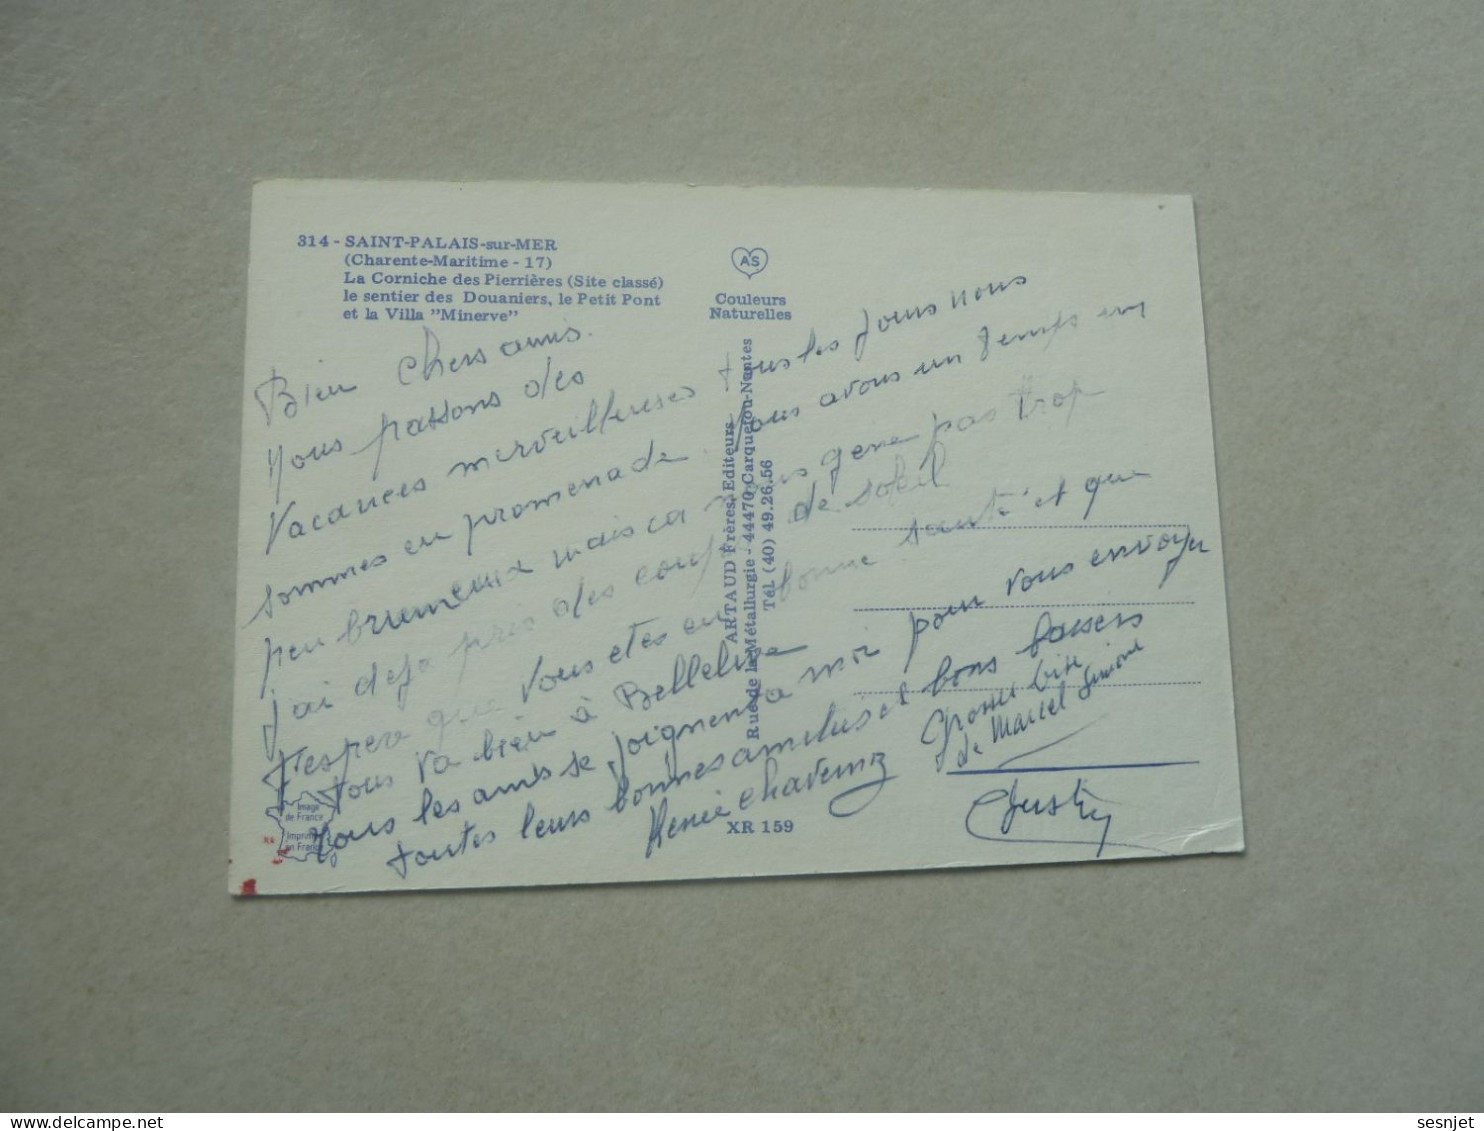 314 - SAINT-PALAIS-sur-MER
(Charente-Maritime - 17)
La Corniche des Pierrières (Site classé)
le sentier des Douaniers, le Petit Pont
et la Villa "Minerve"
AS
Couleurs
Naturelles
ARTAUD Frères, Editeurs
Rue de la Métallurgie - 44470 Carquefou-Nantes
Tél. (40) 49.26.56
Bien chers amis.
Nous passons des
Vacances merveilleuses tous les jours nous
sommes en promenade. Nous avons un temps un
peu brumeux mais ca nous gene pas trop
j'ai deja pris des coups de soleil
J'espere que Vous etes en bonne santé et que
tous va bien à Belleluse
Tous les amis se joignent a moi pour vous envoyer
toutes leurs bonnes amities et bons baisers
Renée
Grosses bise
de Marcel Simone
Image
de France
Imprimé
en France
XR 159
sesnjet